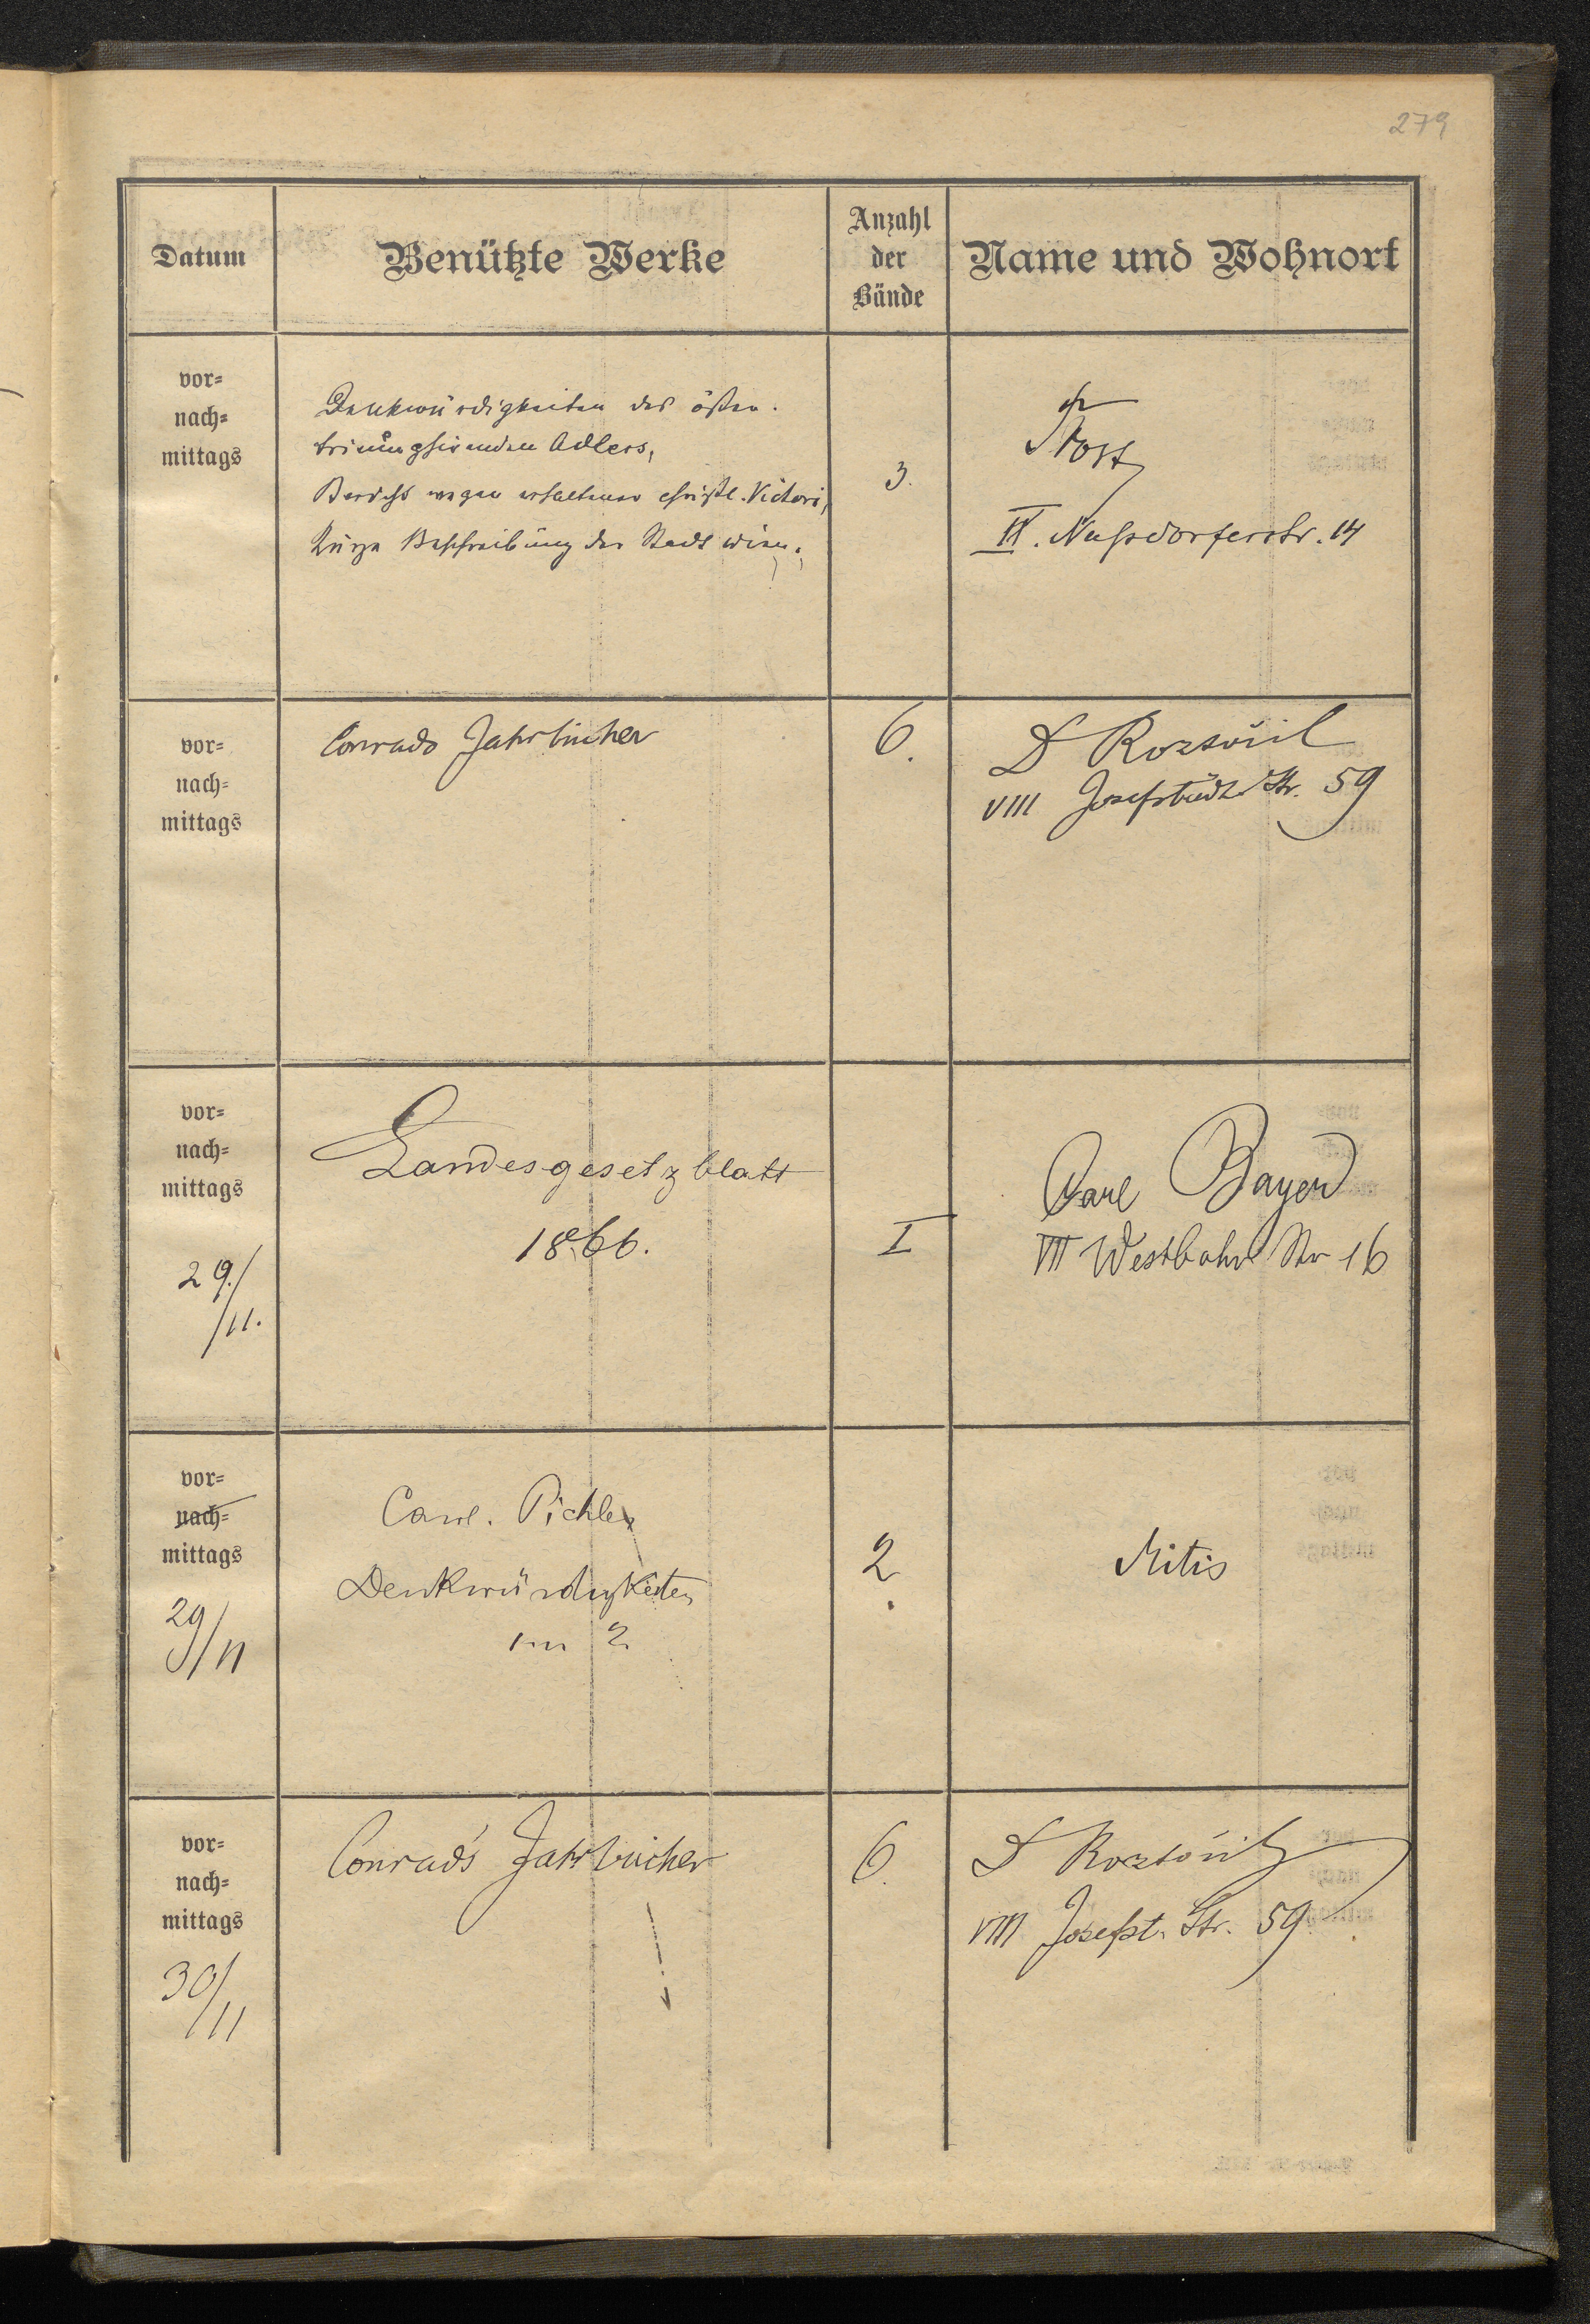 279
Datum
Benützte Werke
Anzahl
der
Bände
Name und Wohnort
vor-
nach-
mittags
Denkwürdigkeiten des österr.
triumphirenden Adlers,
Bericht wegen erhaltener christl. Victori,
Kurze Beschreibung der Stadt Wien.
3.
Nussdorferstr. 14
vor-
nach-
mittags
Conrads Jahrbücher
6.
VIII Josefstädt. Str. 59
vor-
nach-
mittags
29./11.
Landesgesetzblatt
1866.
I
Carl Bayer
VII Westbahn Str 16
vor-
nach-
mittags
29/11
Carol. Pichler
Denkwürdigkeiten
2
2.
Mitis
vor-
nach-
mittags
30/11
Conrad's Jahrbücher
6.
VIII Josefst. Str. 59